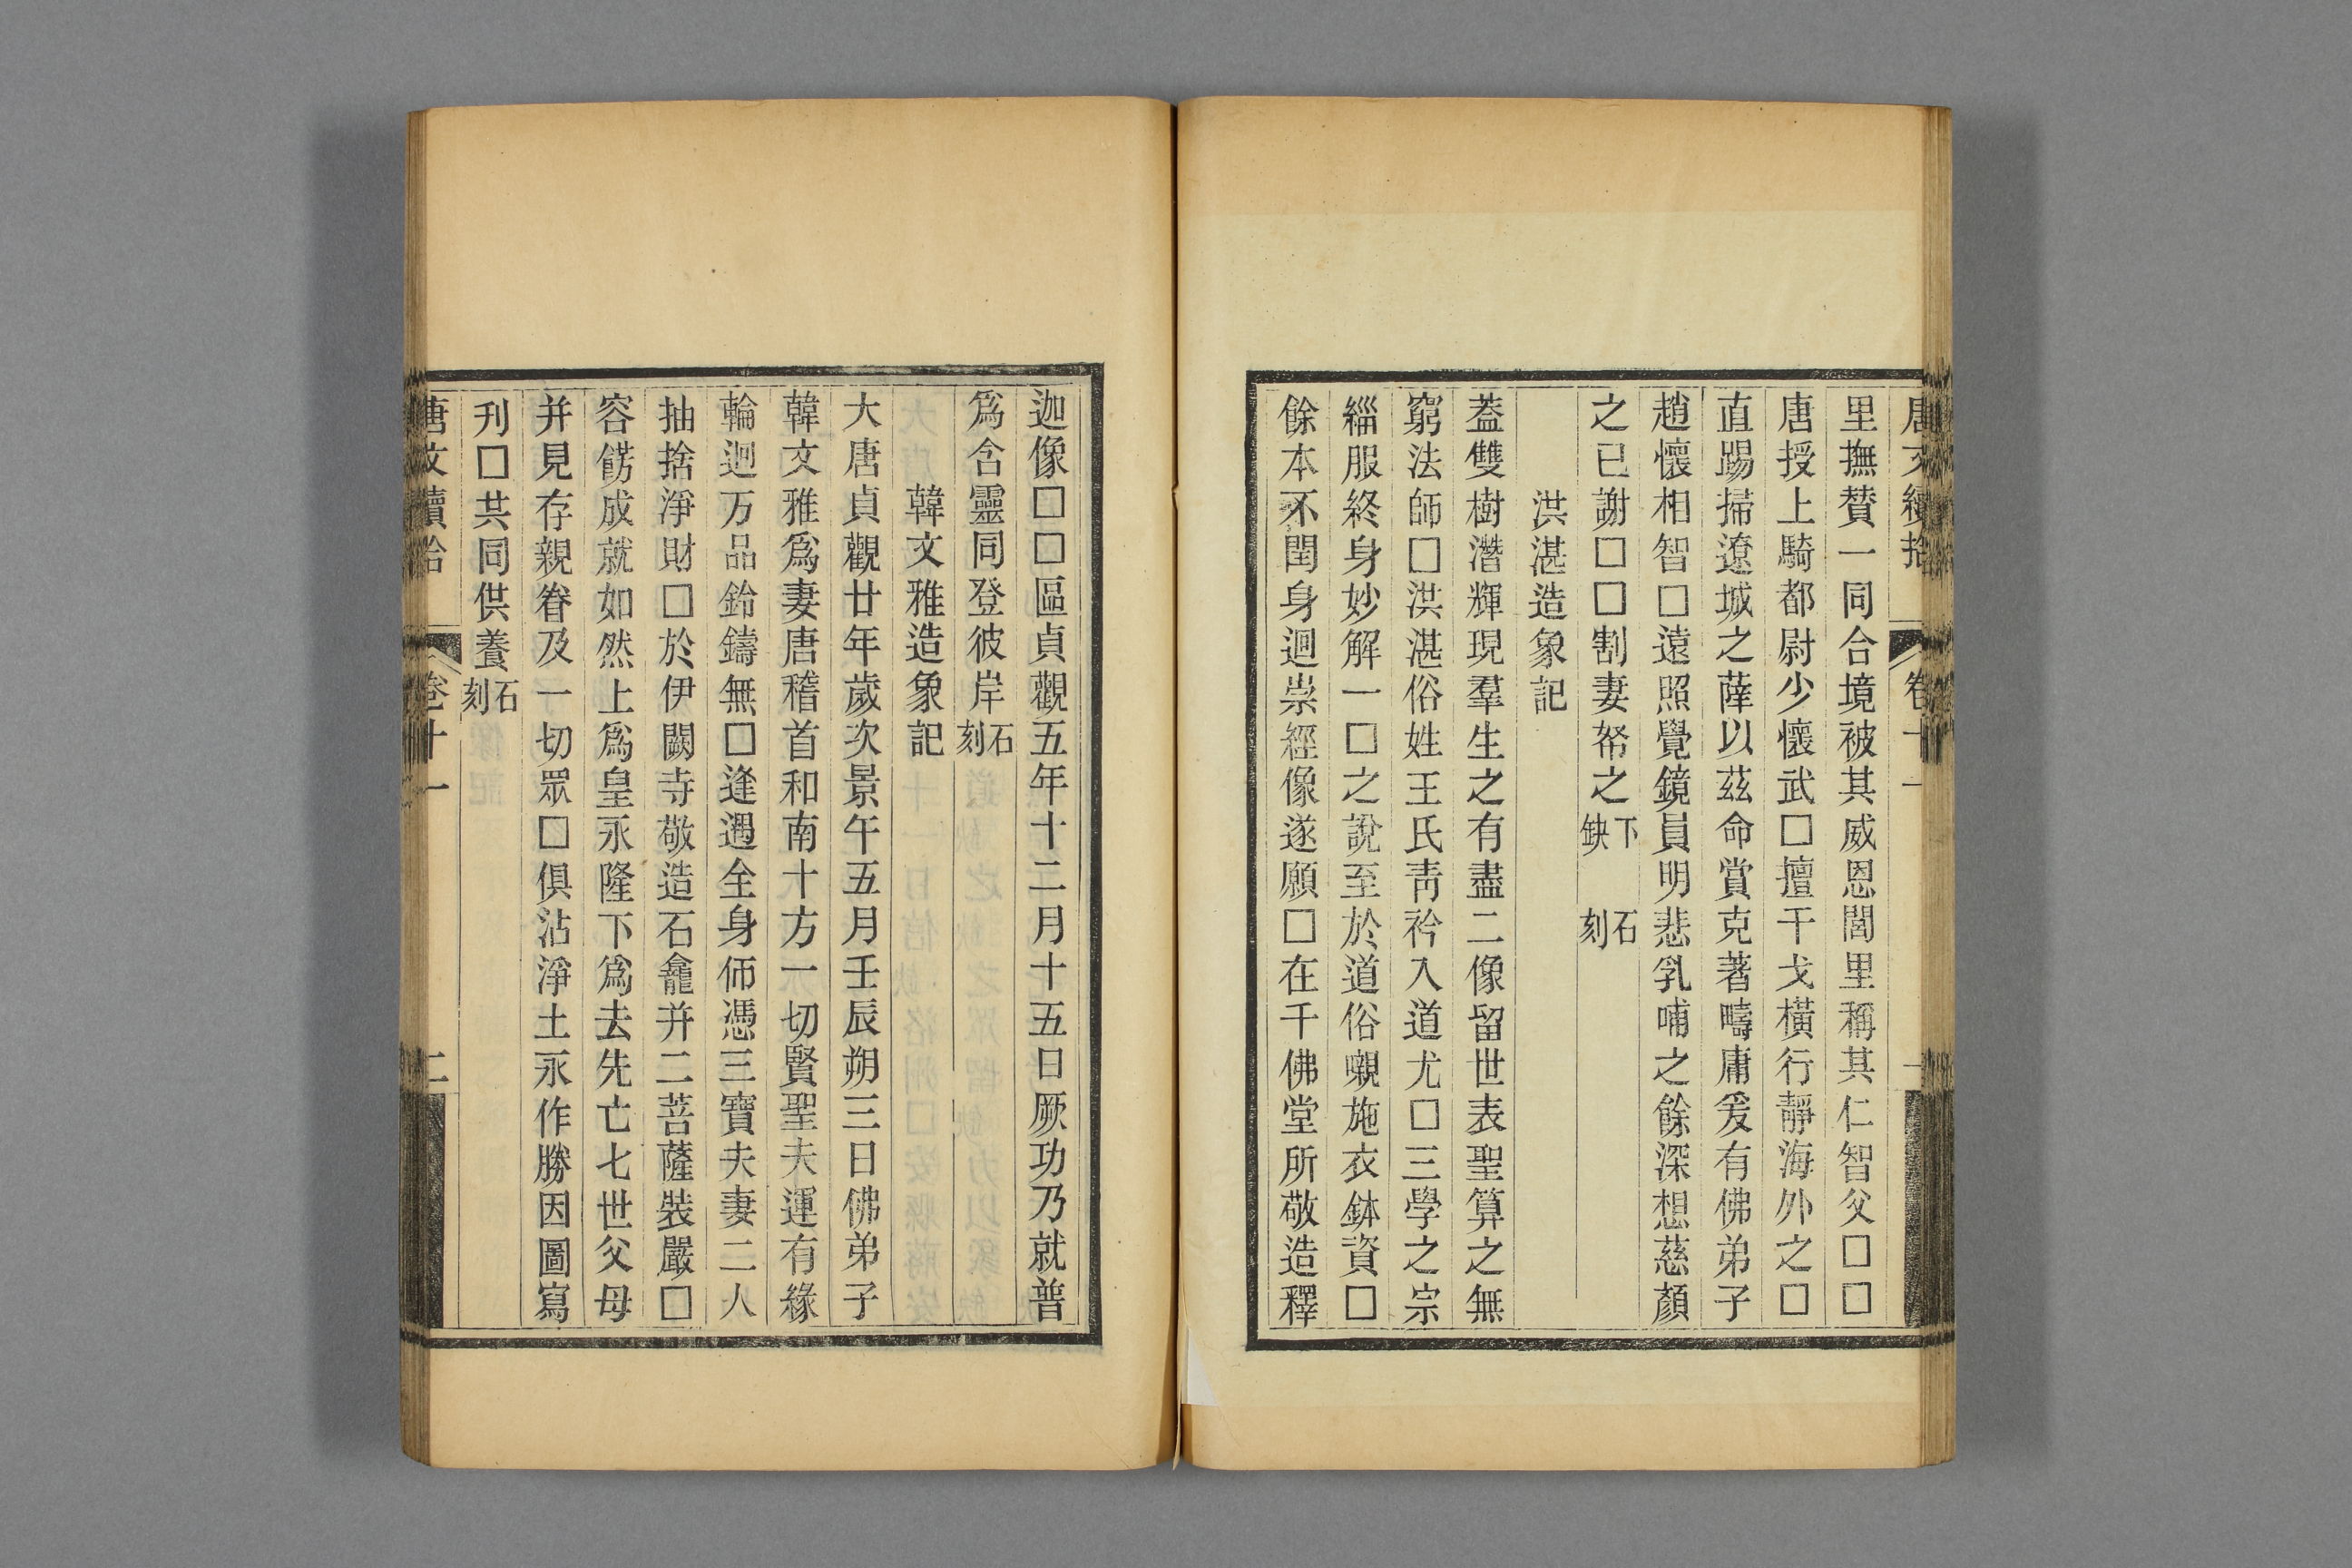 唐文續拾 卷十一
里撫賛一同合境被其威恩閭里稱其仁智父□□
唐授上騎都尉少懷武□擅干戈橫行靜海外之□
直踢掃遼城之薩以茲命賞克著疇庸爰有佛弟子
趙懷相智□遠照覺鏡員明悲乳哺之餘深想慈顏
之已謝□□割妻帑之下缺 石刻
洪湛造象記
蓋雙樹潛輝現羣生之有盡二像留世表聖算之無
窮法師□洪湛俗姓王氏靑衿入道尤□三學之宗
緇服終身妙解一□之說至於道俗嚫施衣鉢資□
餘本不閏身迴崇經像遂願□在千佛堂所敬造釋
迦像□□區貞觀五年十二月十五日厥功乃就普
爲含靈同登彼岸石刻
韓文雅造象記
大唐貞觀廿年歲次景午五月壬辰朔三日佛弟子
韓文雅爲妻唐稽首和南十方一切賢聖夫運有緣
輪迴万品鈴鑄無□逢遇全身師憑三寶夫妻二人
抽捨淨財□於伊闕寺敬造石龕并二菩薩裝嚴□
容餝成就如然上爲皇永隆下爲去先亡七世父母
并見存親眷及一切眾□俱沾淨土永作勝因圖寫
刋□共同供養石刻
唐文續拾 卷十一 二